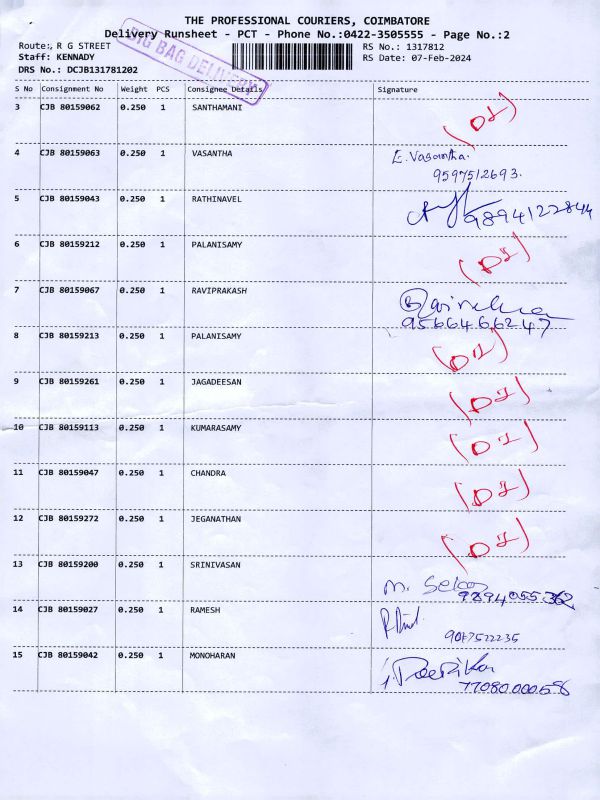 THE PROFESSIONAL COURIERS, COIMBATORE
Delivery Runsheet - PCT - Phone No.:0422-3505555 - Page No.:2
BIG BAG DELIVERY
Route:, R G STREET RS No.: 1317812
Staff: KENNADY RS Date: 07-Feb-2024
DRS No.: DCJB131781202
S No Consignment No Weight PCS Consignee Details Signature
3 CJB 80159062 0.250 1 SANTHAMANI
4 CJB 80159063 0.250 1 VASANTHA E. Vasantha.
9597512693.
5 CJB 80159043 0.250 1 RATHINAVEL
9894122844
6 CJB 80159212 0.250 1 PALANISAMY
7 CJB 80159067 0.250 1 RAVIPRAKASH
9566466247
8 CJB 80159213 0.250 1 PALANISAMY
9 CJB 80159261 0.250 1 JAGADEESAN
10 CJB 80159113 0.250 1 KUMARASAMY
11 CJB 80159047 0.250 1 CHANDRA
12 CJB 80159272 0.250 1 JEGANATHAN
13 CJB 80159200 0.250 1 SRINIVASAN
9894055362
14 CJB 80159027 0.250 1 RAMESH
15 CJB 80159042 0.250 1 MONOHARAN